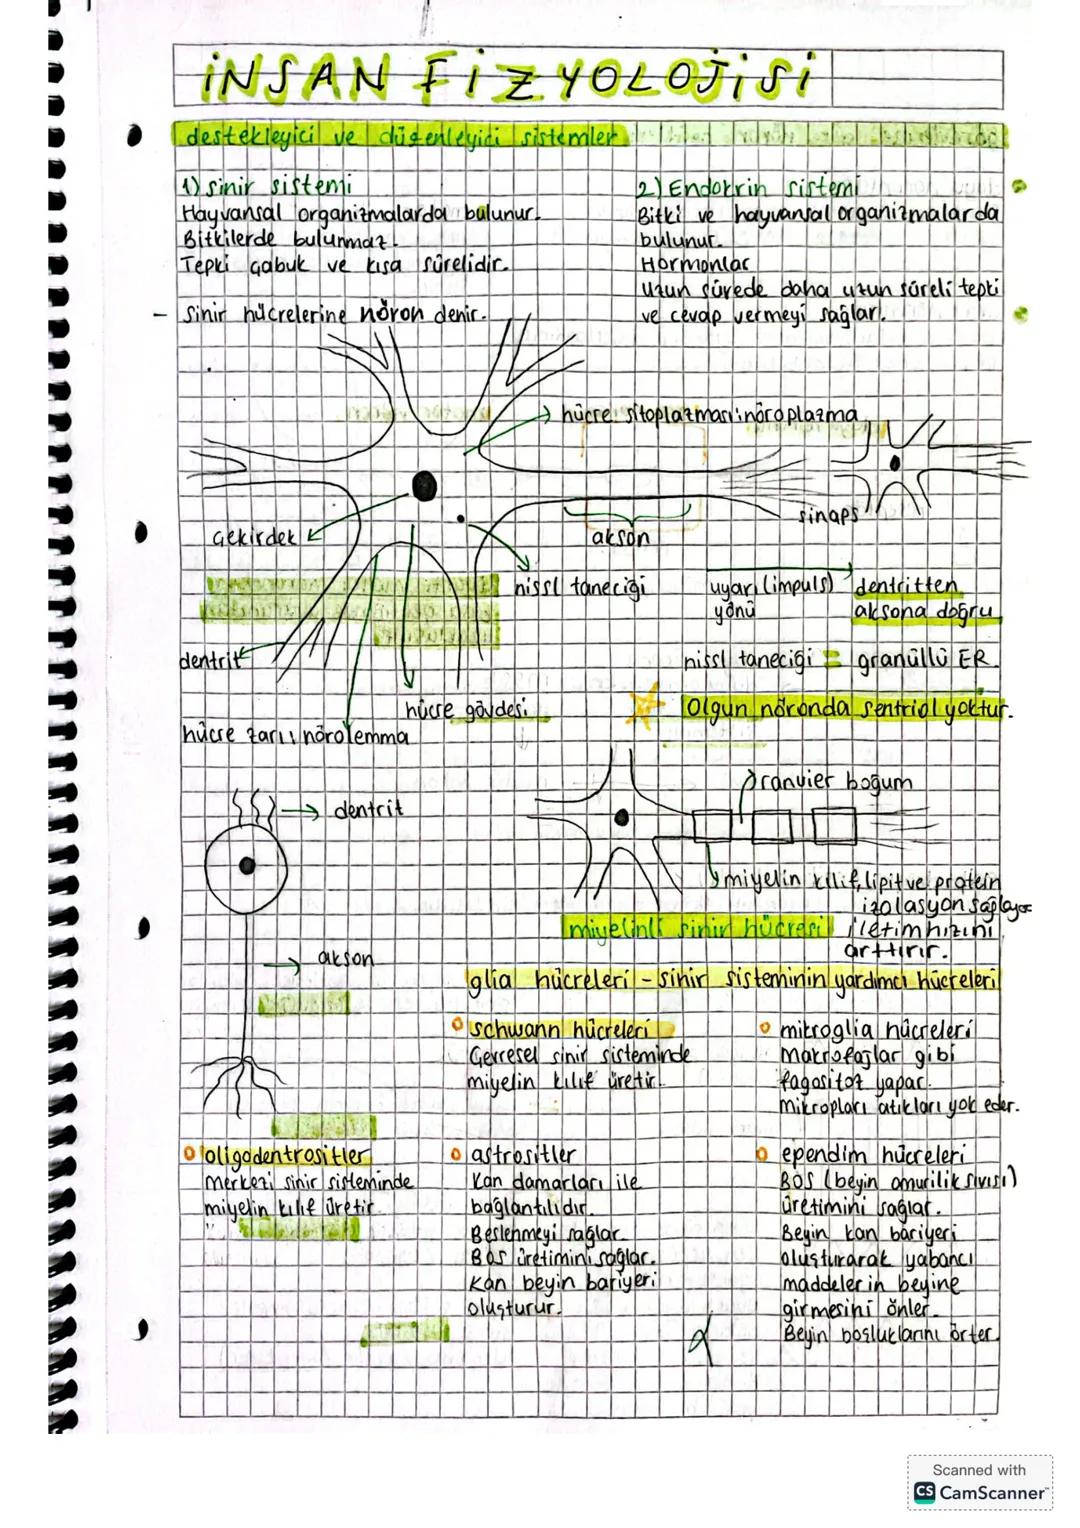 İNSAN FİZYOLOJİSİ
destekleyici ve düzenleyici sistemler
1) sinir sistemi
Hayvansal organizmalarda bulunur.
Bitkilerde bulunmaz.
Tepki çabuk ve kısa sürelidir.
- Sinir hücrelerine nöron denir.
2) Endokrin sistemi
Bitki ve hayvansal organizmalarda
bulunur.
Hormonlar
Uzun sürede daha uzun süreli tepki
ve cevap vermeyi sağlar.
hücre sitoplazması: nöroplazma
çekirdek
akson
sinaps
nissl taneciği
uyarı (impuls)
yönü
dentritten
aksona doğru
dentrit
nissl taneciği = granüllü ER
hücre gövdesi
Olgun nöronda sentriol yoktur.
hücre zarı: nörolemma
dentrit
ranvier boğum
miyelin kılıf, lipit ve protein
izolasyon sağlıyor
iletim hızını
arttırır.
miyelinli sinir hücresi
akson
glia hücreleri - sinir sisteminin yardımcı hücreleri
schwann hücreleri
Çevresel sinir sisteminde
miyelin kılıf üretir.
mikroglia hücreleri
makrofajlar gibi
fagositoz yapar.
mikropları atıkları yok eder.
oligodentrositler
Merkezi sinir sisteminde
miyelin kılıf üretir.
astrositler
Kan damarları ile
bağlantılıdır.
Beslenmeyi sağlar.
Bos üretimini sağlar.
Kan beyin bariyeri
oluşturur.
ependim hücreleri
BOS (beyin omurilik sıvısı)
üretimini sağlar.
Beyin kan bariyeri
oluşturarak yabancı
maddelerin beyine
girmesini önler.
Beyin boşluklarını örter.
Scanned with
CS CamScanner